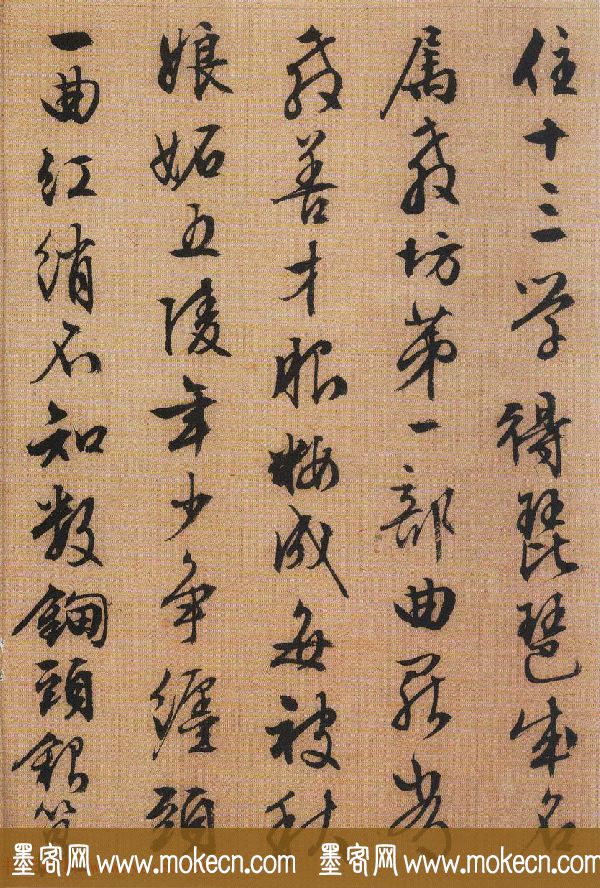 住十三学得琵琶成名
属教坊第一部曲罷
教善才服粧成每被秋
娘妬五陵年少争纏頭
一曲红绡不知数鈿頭銀
墨客网 www.mokecn.com 墨客网 www.mokecn.com